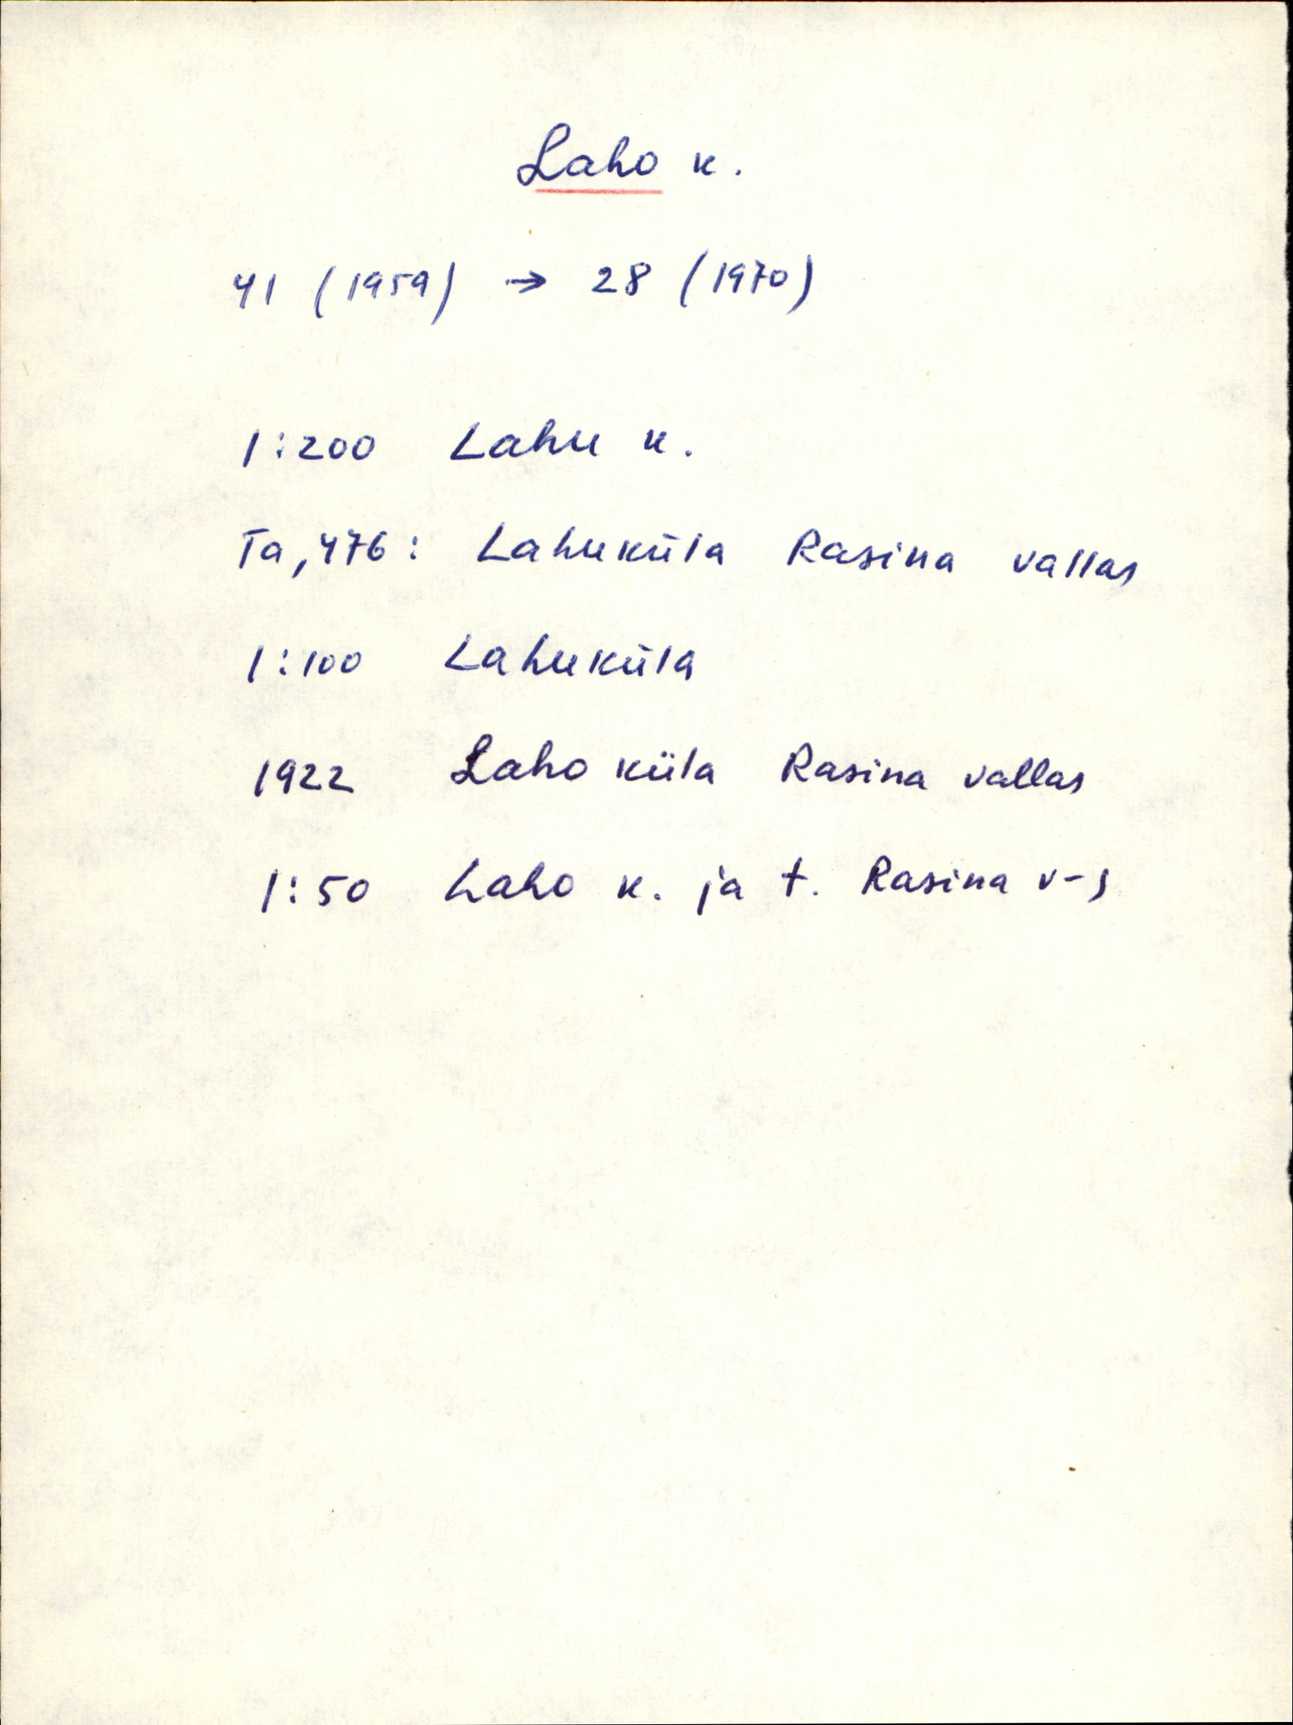 Laho k.
41 (1959) → 28 (1970)
1:200 Lahu k.
Ta, 476: Lahuküla Rasina vallas
1:100 Lahuküla
1922 Laho küla Rasina vallas
1:50 Laho k. ja t. Rasina v-s